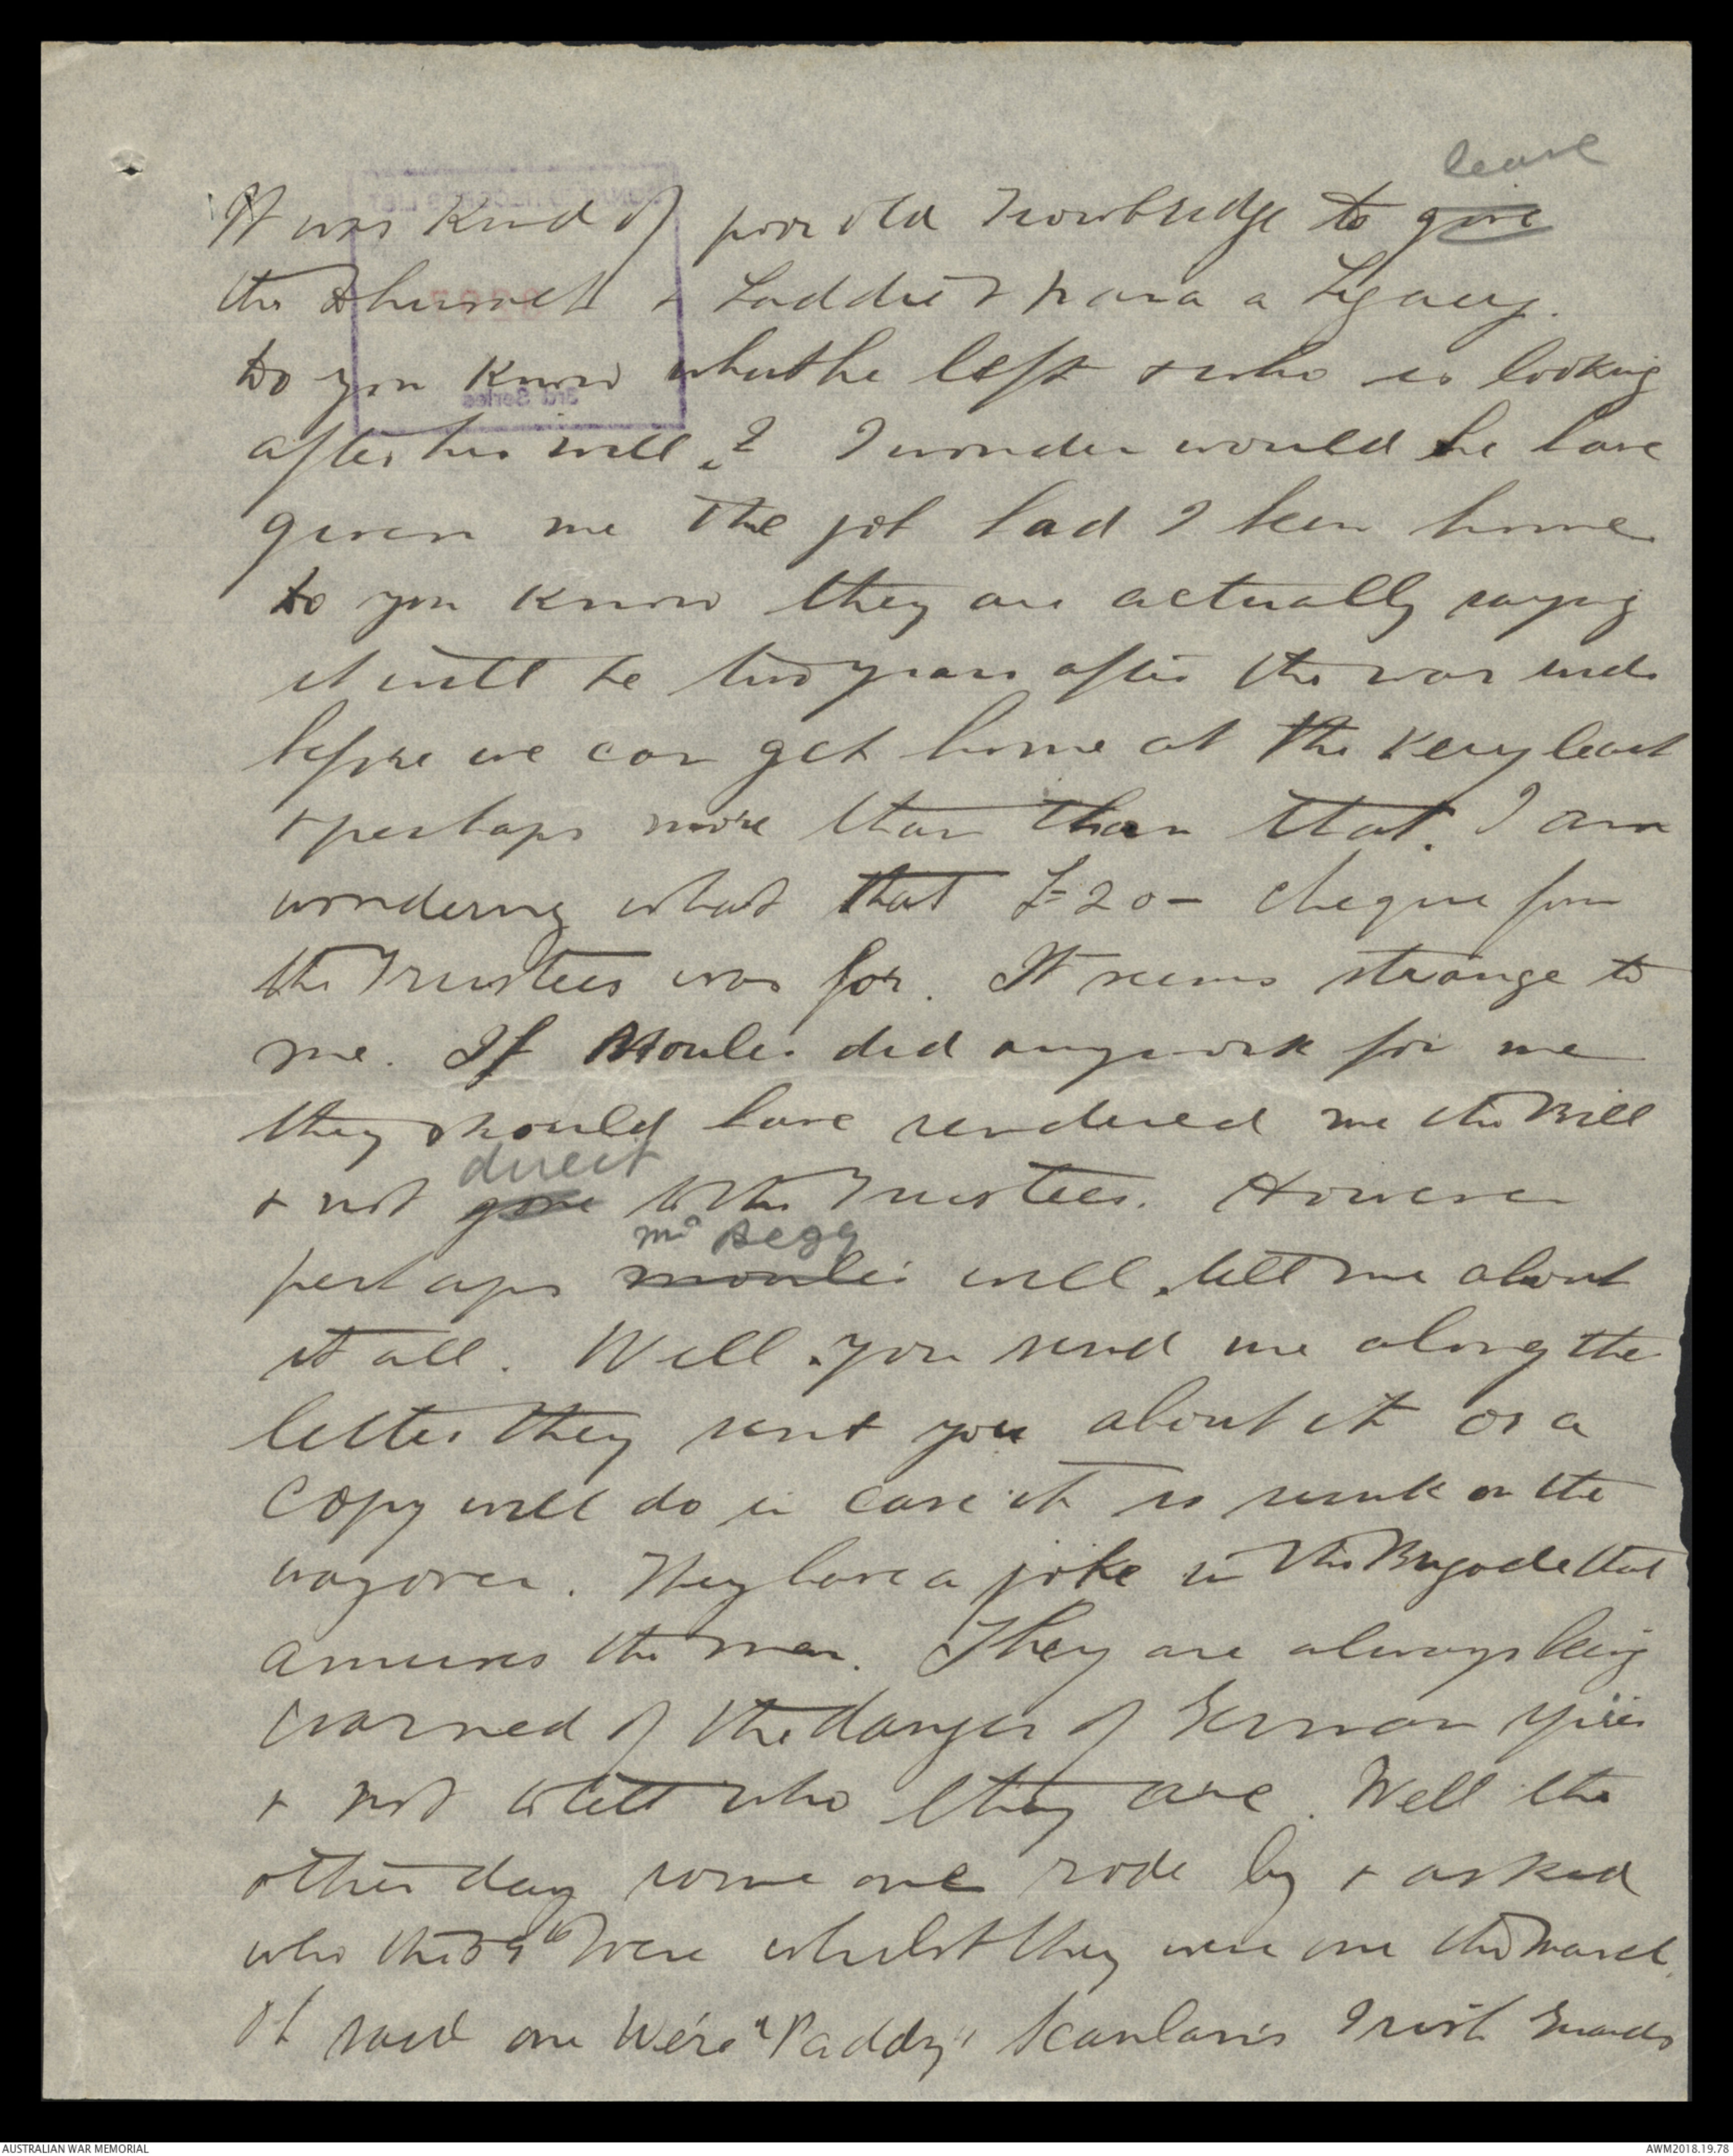 leave
It was kind of poor old Trowbridge to give
the & Laddie & Nana a Legacy.
Do you know what he left & who is looking
after his will? I wonder would he have
given me the job had I been home
Do you know they are actually saying
it will be two years after the war ends
before we can get home at the very least
& perhaps more than than that. I am
wondering what that £20- cheque from
the Trustees was for. It seems strange to
me. If Moules did any work for me
they should have rendered me the Bill
direct
& not gone to the Trustees. However
Mr Begg
perhaps Moules will tell me about
it all. Will you send me along the
letter they sent you about it or a
copy will do in case it is sunk on the
way over. They have a joke in the Brigade that
amuses the men. They are always being
warned of the danger of German spies
& not to tell who they are. Well the
other day some one rode by & asked
who the 59th were whilst they were on the march.
Oh said one We're "Paddy" Scanlan's Irish Guards
3rd Series
AUSTRALIAN WAR MEMORIAL
AWM2018.19.78